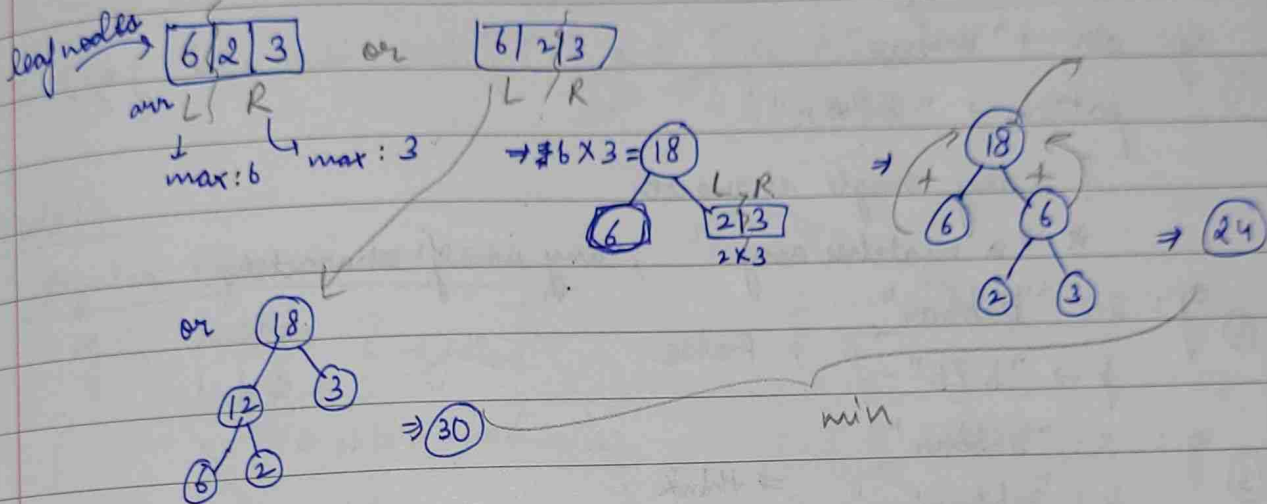 leaf nodes → 6 2 3 or 6 2 3
arr L R L R
max: 6 max: 3
⇒ 6 × 3 = 18
6 L R
2 3
2 × 3
⇒ 18
+ +
6 6
2 3
⇒ 24
or 18
12 3
6 2
⇒ 30
min